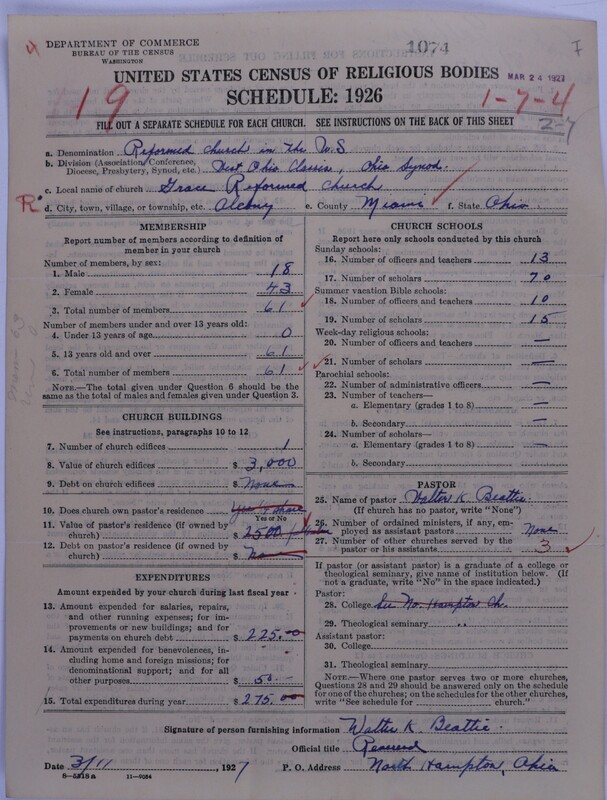 DEPARTMENT OF COMMERCE
BUREAU OF THE CENSUS
WASHINGTON
1074
7
UNITED STATES CENSUS OF RELIGIOUS BODIES
MAR 24 1927
SCHEDULE: 1926
19
1-7-4
FILL OUT A SEPARATE SCHEDULE FOR EACH CHURCH. SEE INSTRUCTIONS ON THE BACK OF THIS SHEET
a. Denomination Reformed Church in the U.S
b. Division (Association, Conference, Diocese, Presbytery, Synod, etc.) West Ohio Classis, Ohio Synod.
c. Local name of church Grace Reformed Church
R d. City, town, village, or township, etc. Alcony e. County Miami f. State Ohio
MEMBERSHIP
Report number of members according to definition of member in your church
Number of members, by sex:
1. Male 18
2. Female 43
3. Total number of members 61
Number of members under and over 13 years old:
4. Under 13 years of age 0
5. 13 years old and over 61
6. Total number of members 61
NOTE.—The total given under Question 6 should be the same as the total of males and females given under Question 3.
CHURCH BUILDINGS
See instructions, paragraphs 10 to 12
7. Number of church edifices 1
8. Value of church edifices $ 3,000
9. Debt on church edifices $ None
10. Does church own pastor's residence
Yes or No
11. Value of pastor's residence (if owned by church) $ 2500
12. Debt on pastor's residence (if owned by church) $ None
EXPENDITURES
Amount expended by your church during last fiscal year
13. Amount expended for salaries, repairs, and other running expenses; for improvements or new buildings; and for payments on church debt $ 225.00
14. Amount expended for benevolences, including home and foreign missions; for denominational support; and for all other purposes $ 50
15. Total expenditures during year $ 275.00
CHURCH SCHOOLS
Report here only schools conducted by this church
Sunday schools:
16. Number of officers and teachers 13
17. Number of scholars 70
Summer vacation Bible schools:
18. Number of officers and teachers 10
19. Number of scholars 15
Week-day religious schools:
20. Number of officers and teachers —
21. Number of scholars —
Parochial schools:
22. Number of administrative officers —
23. Number of teachers—
a. Elementary (grades 1 to 8) —
b. Secondary —
24. Number of scholars—
a. Elementary (grades 1 to 8) —
b. Secondary
PASTOR
25. Name of pastor Walter K. Beattie.
(If church has no pastor, write "None")
26. Number of ordained ministers, if any, employed as assistant pastors None
27. Number of other churches served by the pastor or his assistants 3
If pastor (or assistant pastor) is a graduate of a college or theological seminary, give name of institution below. (If not a graduate, write "No" in the space indicated.)
Pastor:
28. College See No. Hampton Ch.
29. Theological seminary "
Assistant pastor:
30. College
31. Theological seminary
NOTE.—Where one pastor serves two or more churches, Questions 28 and 29 should be answered only on the schedule for one of the churches; on the schedules for the other churches, write "See schedule for church."
Signature of person furnishing information Walter K. Beattie.
Official title Reverend
Date 3/11, 1927 P. O. Address North Hampton, Ohio
8-5318a 11-9034